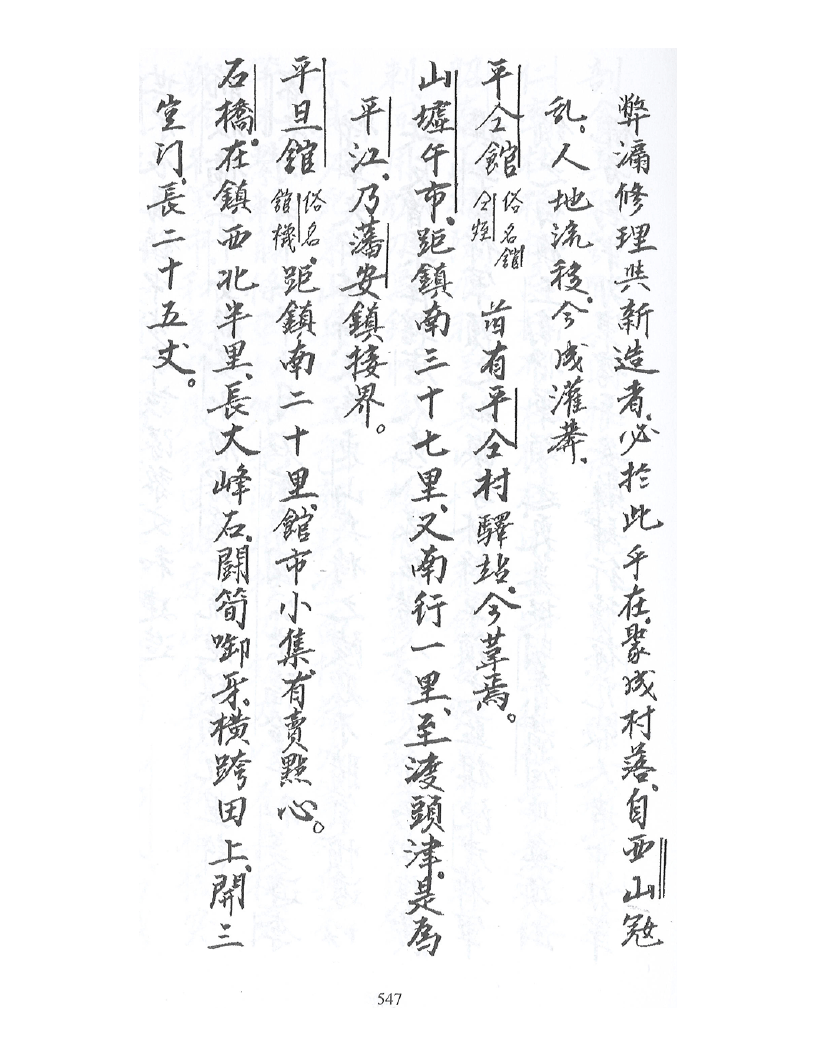 弊漏修理与新造者、必於此乎在。聚成村落。自西山冦
乱。人地流移。今成灌莽。
平仝館俗名館仝 旹有平仝村驛站。今草焉。
山墟午市。距鎮南三十七里、又南行一里、至渡頭津。是為
平江、乃藩安鎮接界。
平旦館俗名館機。距鎮南二十里。館市小集。有賣點心。
石橋。在鎮西北半里、長大峰石。鬪筍啣牙。横跨田上。開三
空门、長二十五丈。
547